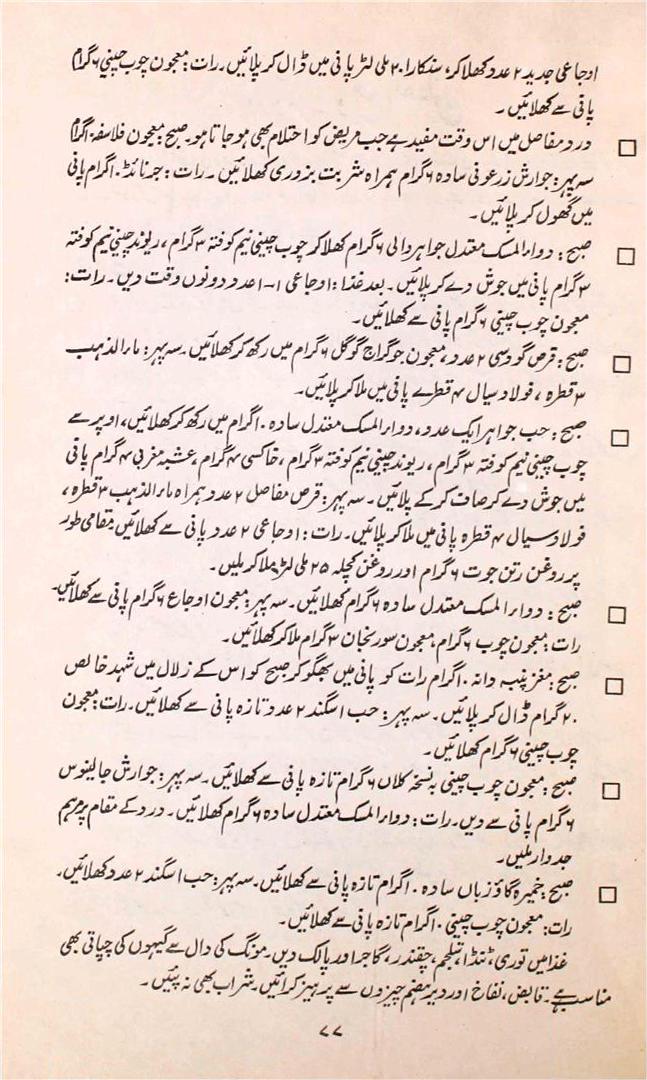 اوجاعی جدید ۲ عدد کھلا کر، سنکارا ۲۰ ملی لٹر پانی میں ڈال کر پلائیں۔ رات: معجون چوب چینی ۶ گرام
پانی سے کھلائیں۔
□ درد مفاصل میں اس وقت مفید ہے جب مریض کو احتلام بھی ہو جاتا ہو۔ صبح: معجون فلاسفہ ۱۰ گرام
سہ پہر: جوارش زرعونی سادہ ۶ گرام ہمراہ شربت بزوری کھلائیں۔ رات: جرنائڈ ۱۰ گرام پانی
میں گھول کر پلائیں۔
□ صبح: دواء المسک معتدل جواہر والی ۶ گرام کھلا کر چوب چینی نیم کوفتہ ۳ گرام، ریوند چینی نیم کوفتہ
۳ گرام پانی میں جوش دے کر پلائیں۔ بعد غذا: اوجاعی ۱-۱ عدد دونوں وقت دیں۔ رات:
معجون چوب چینی ۶ گرام پانی سے کھلائیں۔
□ صبح: قرص گودسی ۲ عدد، معجون جوگراج گوگل ۶ گرام میں رکھ کر کھلائیں۔ سہ پہر: ماء الذہب
۳ قطرہ، فولاد سیال ۴ قطرے پانی میں ملا کر پلائیں۔
□ صبح: حب جواہر ایک عدد، دواء المسک معتدل سادہ ۱۰ گرام میں رکھ کر کھلائیں، اوپر سے
چوب چینی نیم کوفتہ ۳ گرام، ریوند چینی نیم کوفتہ ۳ گرام، خاکسی ۴ گرام، عشبہ مغربی ۴ گرام پانی
میں جوش دے کر صاف کر کے پلائیں۔ سہ پہر: قرص مفاصل ۲ عدد ہمراہ ماء الذہب ۳ قطرہ،
فولاد سیال ۴ قطرہ پانی میں ملا کر پلائیں۔ رات: اوجاعی ۲ عدد پانی سے کھلائیں۔ مقامی طور
پر روغن رتن جوت ۶ گرام اور روغن کچلہ ۲۵ ملی لٹر ملا کر ملیں۔
□ صبح: دواء المسک معتدل سادہ ۶ گرام کھلائیں۔ سہ پہر: معجون اوجاع ۶ گرام پانی سے کھلائیں۔
رات: معجون چوب ۶ گرام، معجون سورنجان ۳ گرام ملا کر کھلائیں۔
□ صبح: مغز پنبہ دانہ ۱۰ گرام رات کو پانی میں بھگو کر صبح کو اس کے زلال میں شہد خالص
۲۰ گرام ڈال کر پلائیں۔ سہ پہر: حب اسگند ۲ عدد تازہ پانی سے کھلائیں۔ رات: معجون
چوب چینی ۶ گرام کھلائیں۔
□ صبح: معجون چوب چینی بہ نسخہ کلاں ۶ گرام تازہ پانی سے کھلائیں۔ سہ پہر: جوارش جالینوس
۶ گرام پانی سے دیں۔ رات: دواء المسک معتدل سادہ ۶ گرام کھلائیں۔ درد کے مقام پر مرہم
جدوار ملیں۔
□ صبح: خمیرہ گاؤ زباں سادہ ۱۰ گرام تازہ پانی سے کھلائیں۔ سہ پہر: حب اسگند ۲ عدد کھلائیں۔
رات: معجون چوب چینی ۱۰ گرام تازہ پانی سے کھلائیں۔
غذا میں توری، ٹنڈا، شلجم، چقندر، گاجر اور پالک دیں۔ مونگ کی دال سے گیہوں کی چپاتی بھی
مناسب ہے۔ قابض، نفاخ اور دیر ہضم چیزوں سے پرہیز کرائیں۔ شراب بھی نہ پئیں۔
۷۷